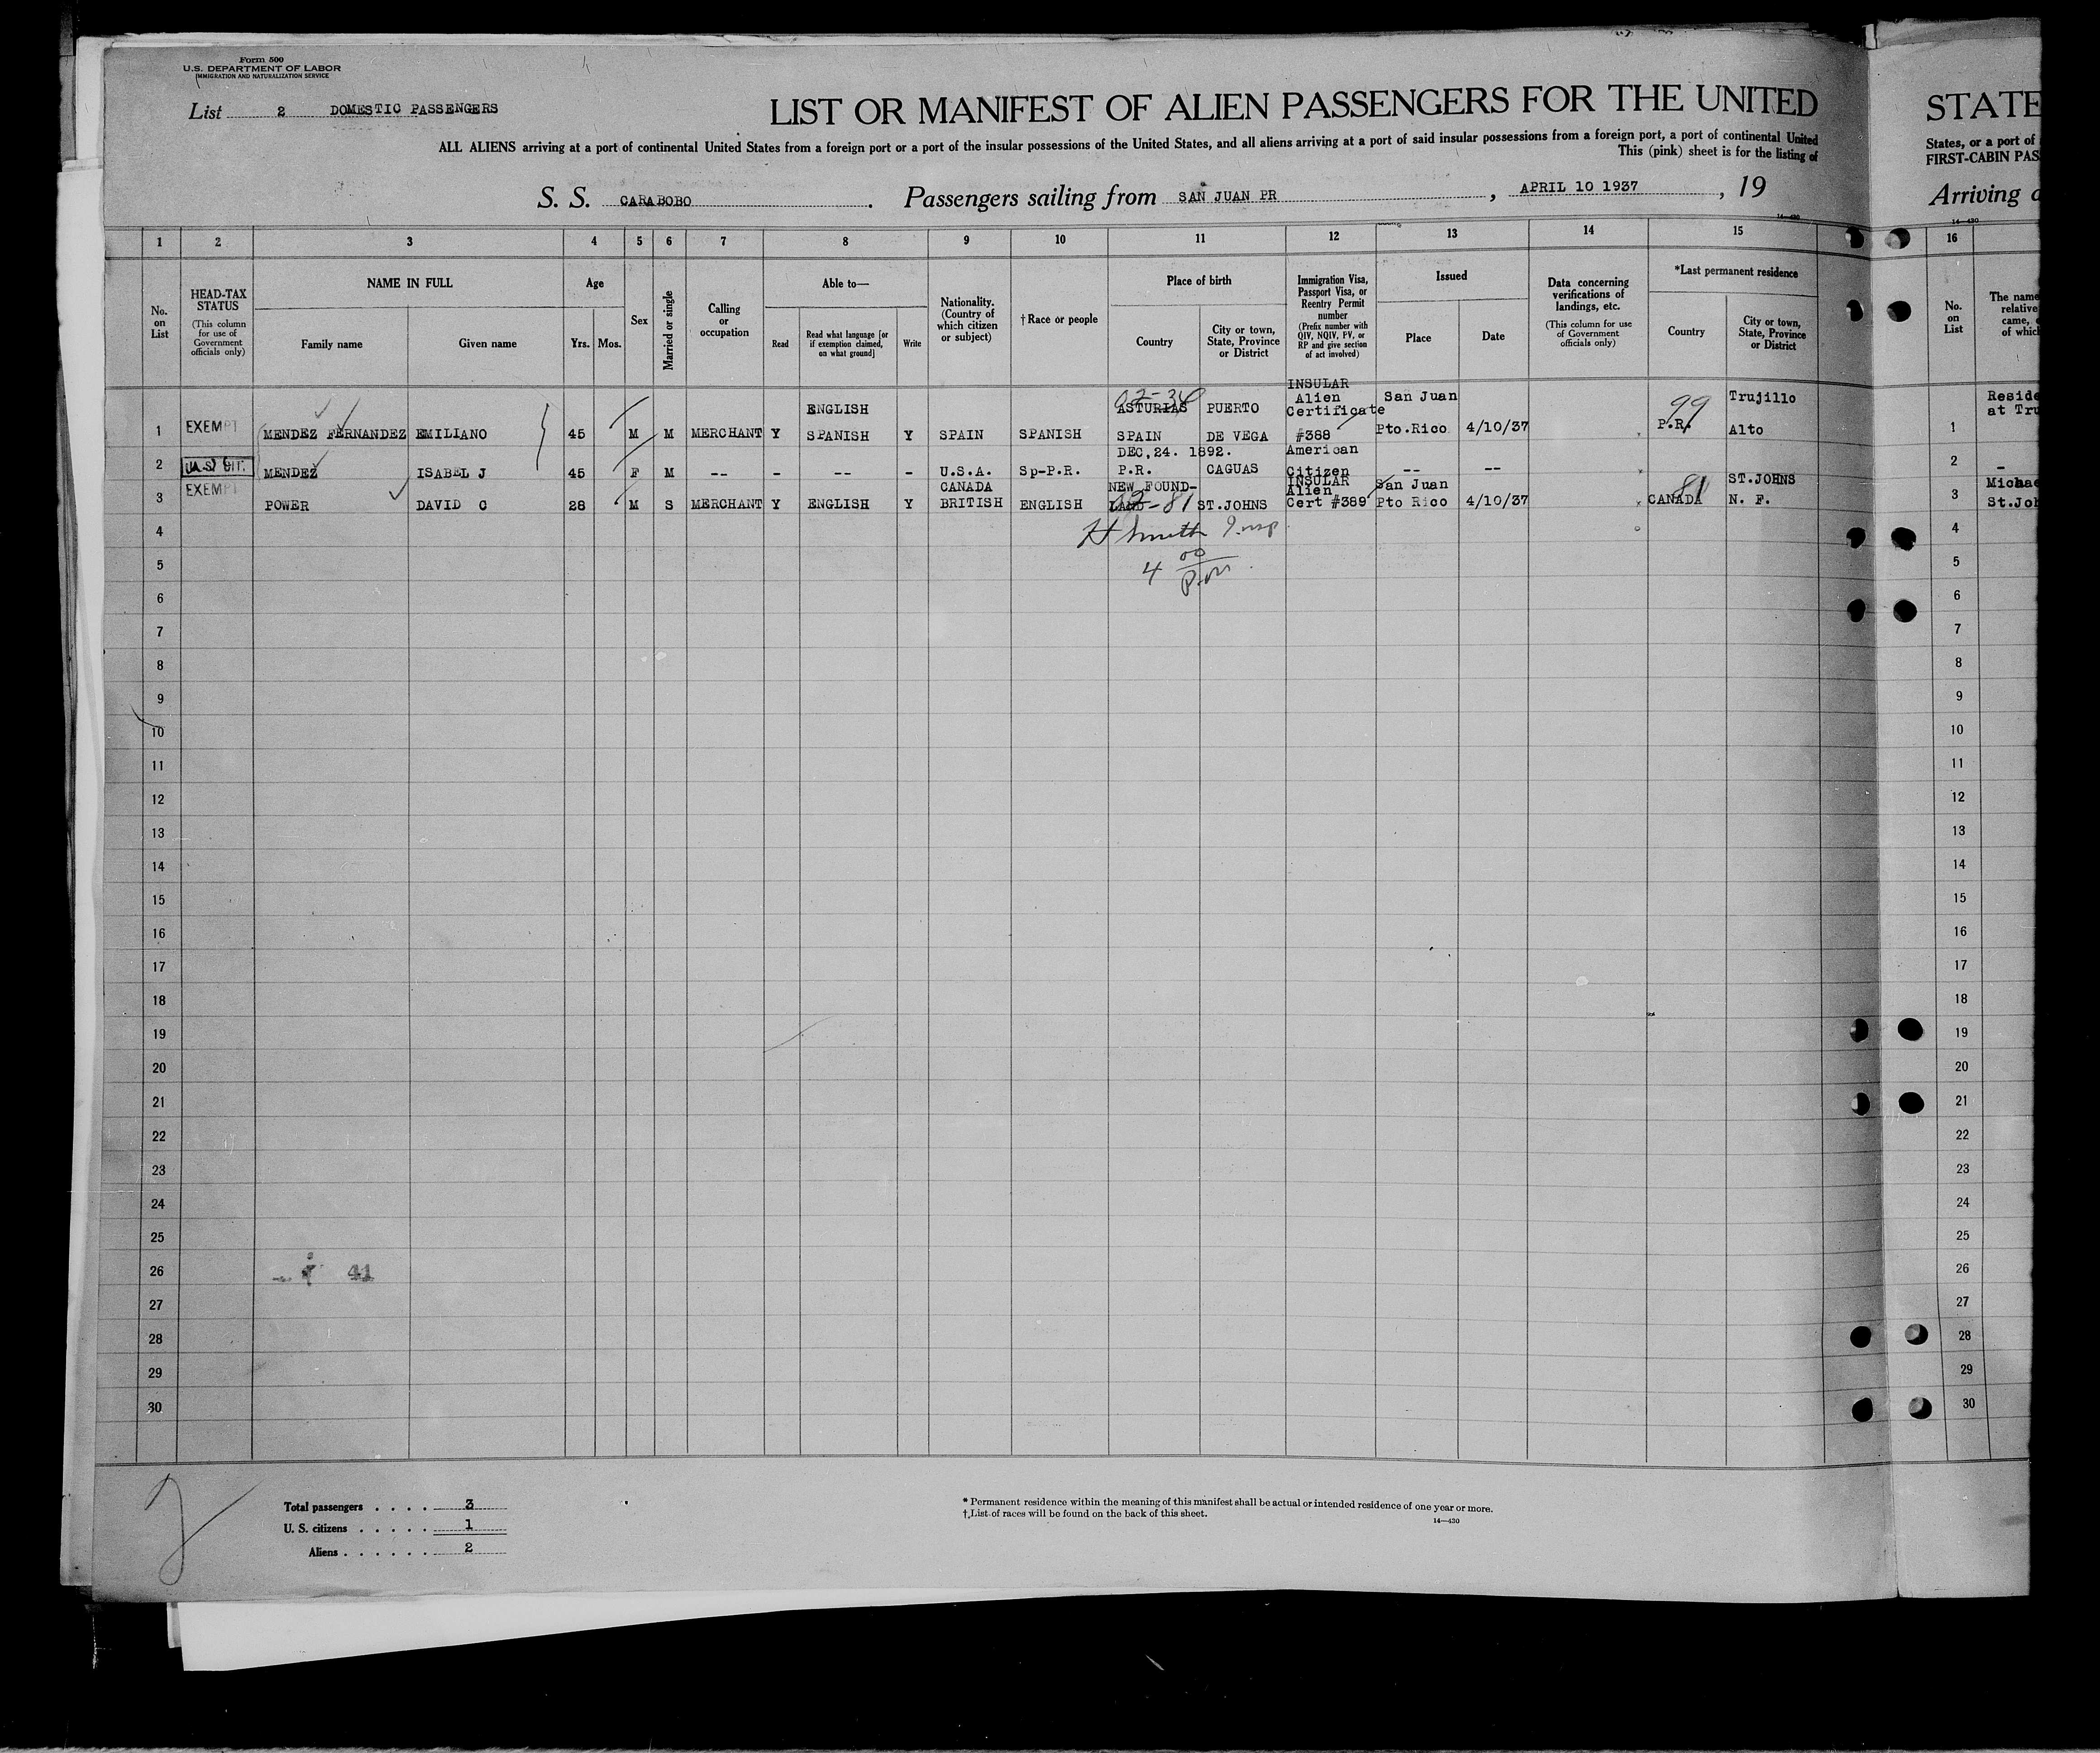 Form 500
U.S. DEPARTMENT OF LABOR
IMMIGRATION AND NATURALIZATION SERVICE
List 2 DOMESTIC PASSENGERS
LIST OR MANIFEST OF ALIEN PASSENGERS FOR THE UNITED
ALL ALIENS arriving at a port of continental United States from a foreign port or a port of the insular possessions of the United States, and all aliens arriving at a port of said insular possessions from a foreign port, a port of continental United
This (pink) sheet is for the listing of
S. S. CARABOBO . Passengers sailing from SAN JUAN PR , APRIL 10 1937 , 19
14—430
STATE
States, or a port of
FIRST-CABIN PAS
Arriving a
14—430
1 2 3 4 5 6 7 8 9 10 11 12 13 14 15 16
No. on List
HEAD-TAX STATUS
(This column for use of Government officials only)
NAME IN FULL
Family name Given name
Age
Yrs. Mos.
Sex
Married or single
Calling or occupation
Able to—
Read
Read what language [or if exemption claimed, on what ground]
Write
Nationality. (Country of which citizen or subject)
†Race or people
Place of birth
Country
City or town, State, Province or District
Immigration Visa, Passport Visa, or Reentry Permit number
(Prefix number with QIV, NQIV, PV, or RP and give section of act involved)
Issued
Place Date
Data concerning verifications of landings, etc.
(This column for use of Government officials only)
*Last permanent residence
Country
City or town, State, Province or District
No. on List
The name
relative
came,
of which
1 EXEMPT MENDEZ FERNANDEZ EMILIANO 45 M M MERCHANT Y ENGLISH SPANISH Y SPAIN SPANISH ASTURIAS SPAIN PUERTO DE VEGA INSULAR Alien Certificate #388 San Juan Pto.Rico 4/10/37 P.R. 99 Trujillo Alto 1 Reside
at Tru
DEC,24. 1892.
2 U.S. CIT. MENDEZ ISABEL J 45 F M -- - -- - U.S.A. Sp-P.R. P.R. CAGUAS American Citizen -- -- 2 -
3 EXEMPT POWER DAVID C 28 M S MERCHANT Y ENGLISH Y CANADA BRITISH ENGLISH NEW FOUND-LAND 02-81 ST.JOHNS INSULAR Alien Cert #389 San Juan Pto Rico 4/10/37 CANADA 81 ST.JOHNS N. F. 3 Michae
St.Joh
4 H Smith Insp. 4
5 4 00 5
6 6
7 7
8 8
9 9
10 10
11 11
12 12
13 13
14 14
15 15
16 16
17 17
18 18
19 19
20 20
21 21
22 22
23 23
24 24
25 25
26 41 26
27 27
28 28
29 29
30 30
Total passengers . . . . 3
U. S. citizens . . . . . 1
Aliens . . . . . . 2
* Permanent residence within the meaning of this manifest shall be actual or intended residence of one year or more.
† List of races will be found on the back of this sheet.
14—430